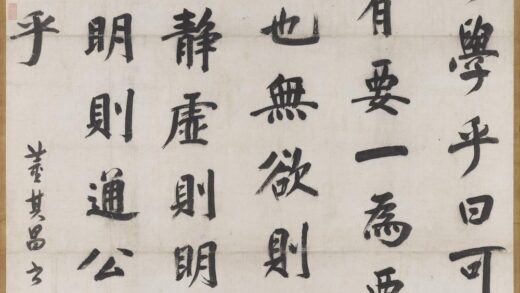 學乎曰可
有要一為要
也無欲則
静虚則明
明則通公
乎
董其昌书